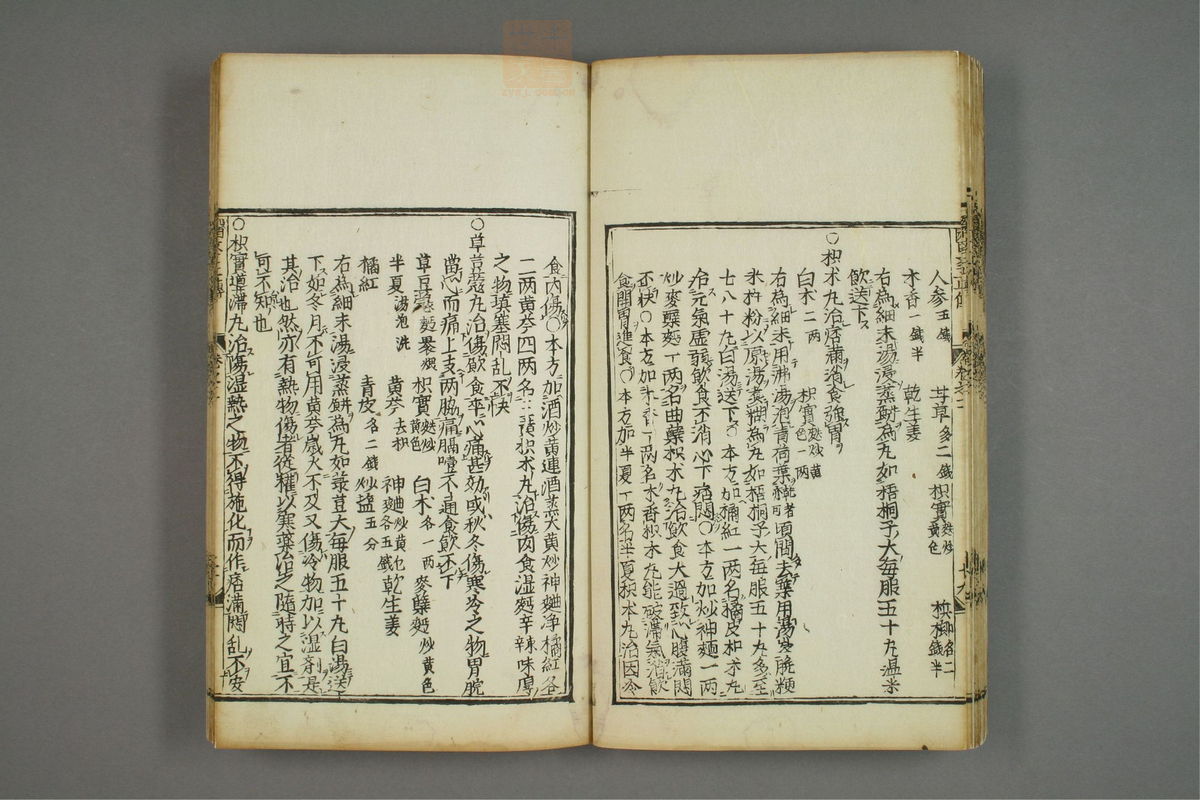 人參五錢 甘草多二錢 枳實麩炒黃色 檳榔各二
木香一錢半 乾生姜 錢半
右為細末湯浸蒸餅為丸如梧桐子大每服五十丸溫米
飲送下
○枳朮丸治痞滿消食強胃
白朮二兩 枳實麩炒黃色一兩
右為細末用沸湯泡青荷葉乾者亦可頃間去葉用湯
米杵粉以原湯煮糊為丸如梧桐子大每服五十丸多至
七八十丸白湯送下○本方加橘紅一兩名橘皮枳朮丸
治元氣虛弱飲食不消心下痞悶○本方加炒神麯一兩
炒麥糵麪一兩名曲糵枳朮丸治飲食大過致心腹滿悶
不快○本方加木香一兩名木香枳朮丸能破滯氣消飲
食開胃進食○本方加半夏一兩名半夏枳朮丸治因冷
食內傷○本方加酒炒黃連酒蒸大黃炒神麯淨橘紅各
二兩黃芩四兩名三黃枳朮丸治傷肉食濕麪辛辣味厚
之物填塞悶亂不快
○草荳蔻丸治傷飲食卒心痛甚効或秋冬傷寒冷之物胃脘
當心而痛上支兩脇痛膈噎不通食飲不下
草豆蔻麪裹煨 枳實麩炒黃色 白朮各一兩 麥糵麪炒黃色
半夏湯泡洗 黃芩去朽 神麯炒黃色各五錢 乾生姜
橘紅 青皮各二錢 炒鹽五分
右為細末湯浸蒸餅為丸如菉荳大每服五十丸白湯送
下如冬月不可用黃芩歲火不及又傷冷物加以濕劑是
其治也然亦有熱物傷者從權以寒藥治之隨時之宜不
可不知也
○枳實導滯丸治傷濕熱之物不得施化而作痞滿悶亂不安